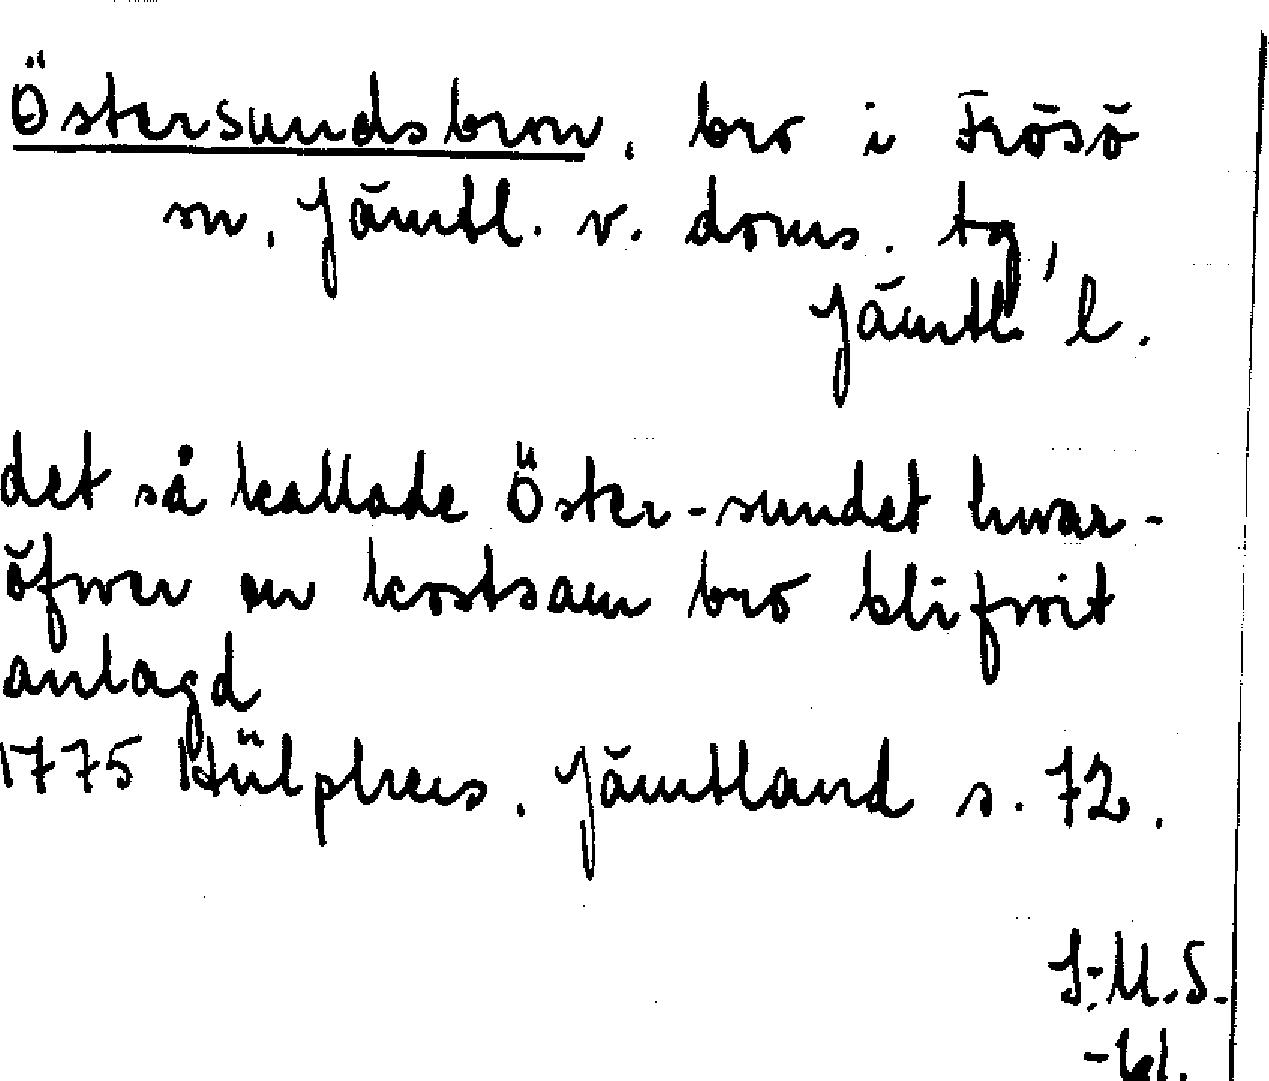 Östersundsbron, bro i Frösö
sn, Jämtl. v. doms. tg,
Jämtl. l.
det så kallade Öster-sundet hwar-
öfwer en kostsam bro blifwit
anlagd
1775 Hülphers. Jämtland s. 72.